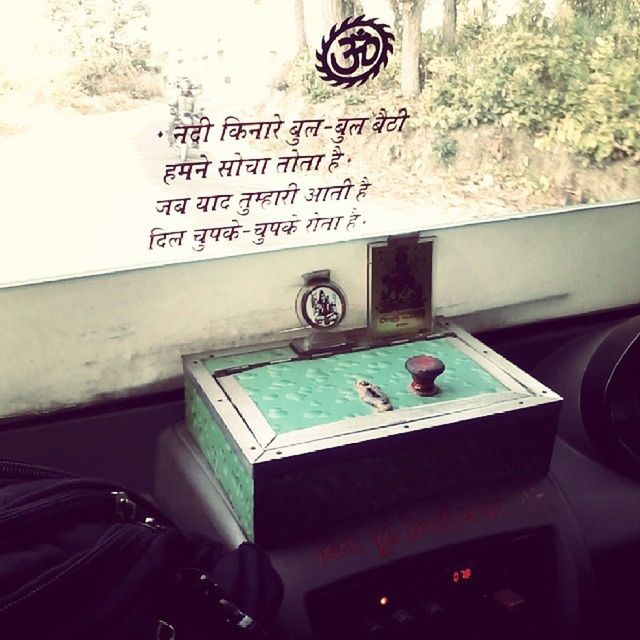 ॐ
• नदी किनारे बुल-बुल बैठी
हमने सोचा तोता है •
जब याद तुम्हारी आती है
दिल चुपके-चुपके रोता है •